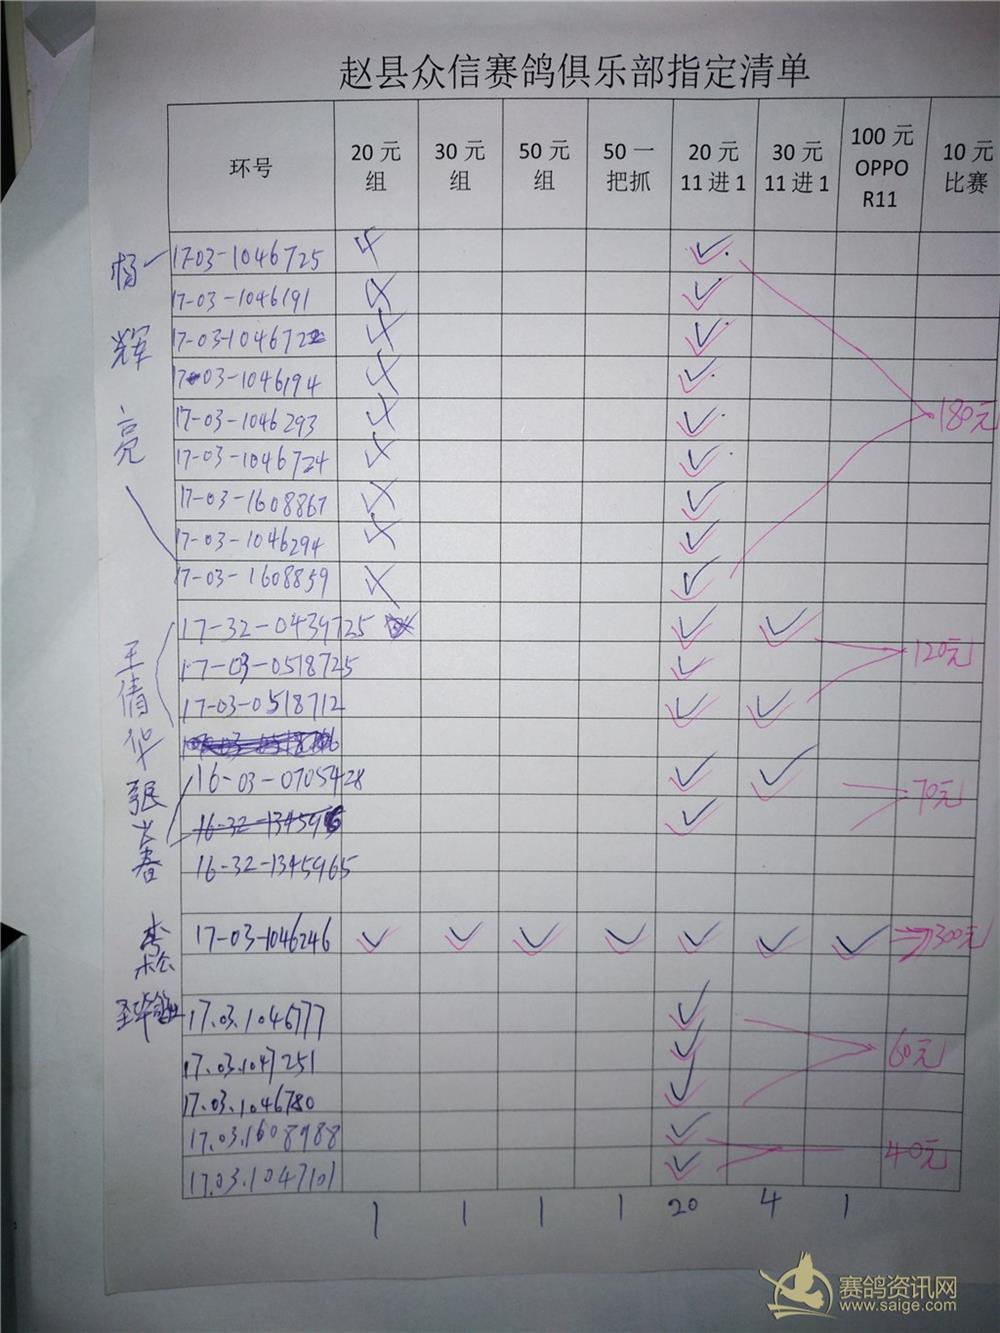 赵县众信赛鸽俱乐部指定清单
环号 20元组 30元组 50元组 50一把抓 20元11进1 30元11进1 100元OPPO R11 10元比赛
杨辉亮
17-03-1046725
17-03-1046191
17-03-1046722
17-03-1046194
17-03-1046293
17-03-1046724
17-03-1608867
17-03-1046294
17-03-1608859
180元
王倩华
17-32-0439725
17-03-0518725
17-03-0518712
120元
16-03-0705428
16-32-134596
16-32-1345965
70元
17-03-1046246
300元
17.03.1046777
17.03.1047251
17.03.1046780
60元
17.03.1608988
17.03.1047101
40元
1 1 1 1 20 4 1
赛鸽资讯网
www.saige.com